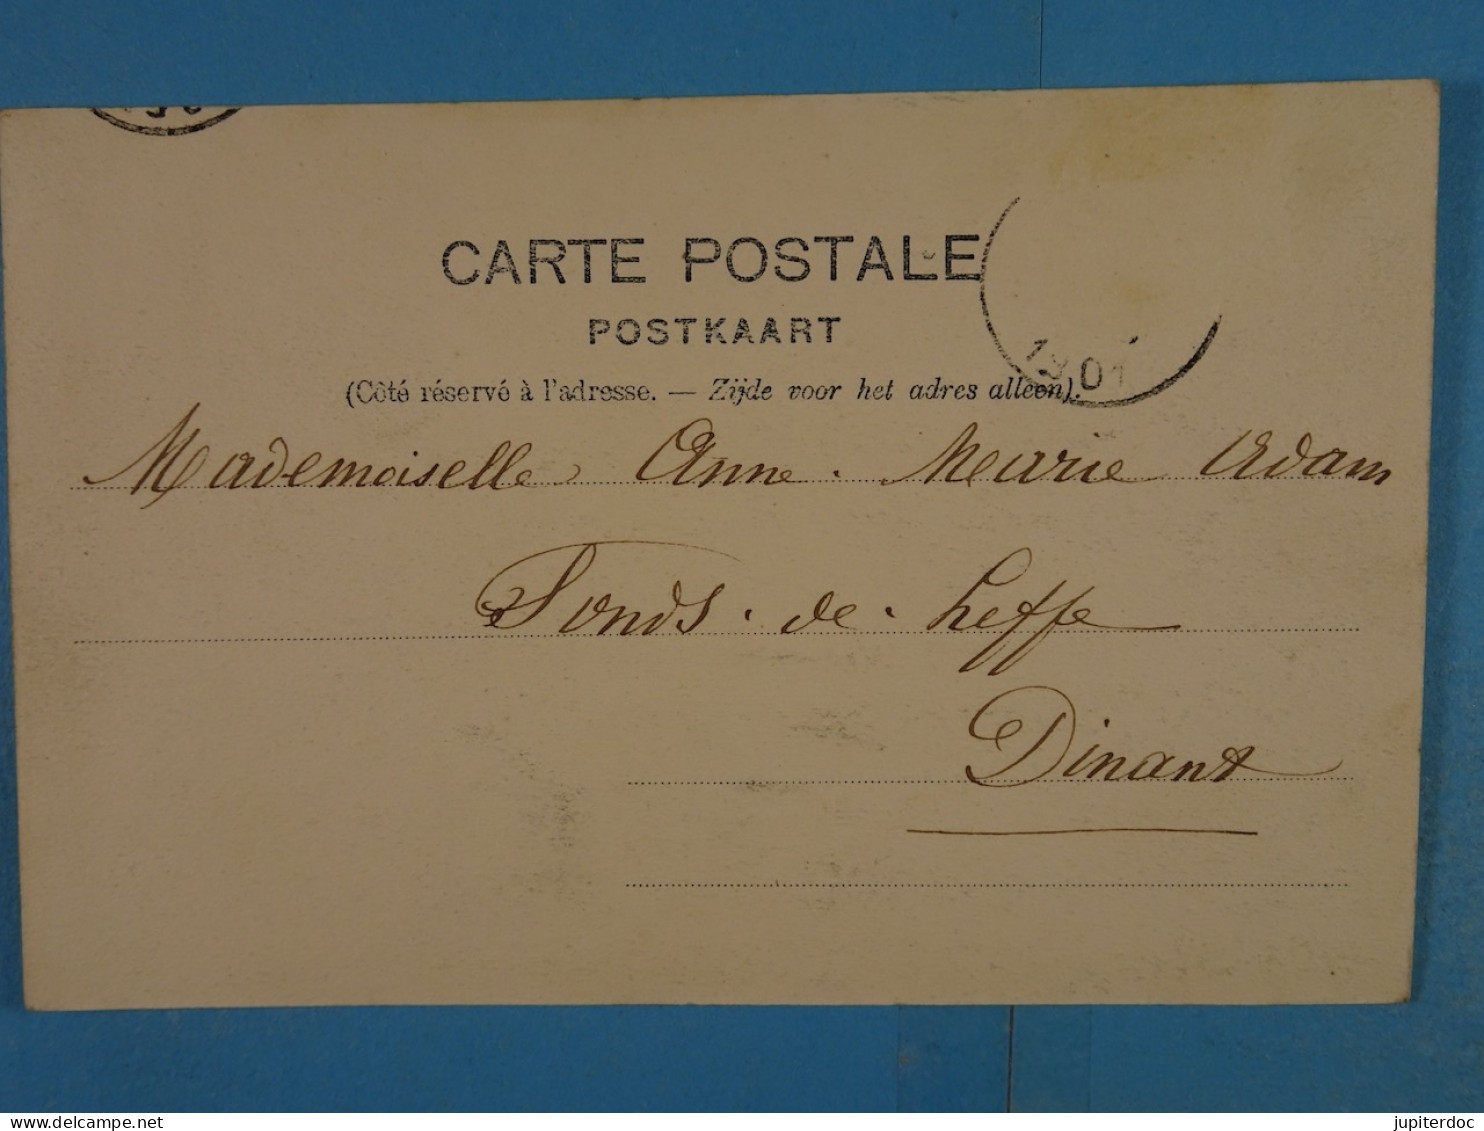 CARTE POSTALE
POSTKAART
(Côté réservé à l'adresse. — Zijde voor het adres alleen).
1901
Mademoiselle Anne-Marie Adam
Fonds-de-Leffe
Dinant
delcampe.net
jupiterdoc